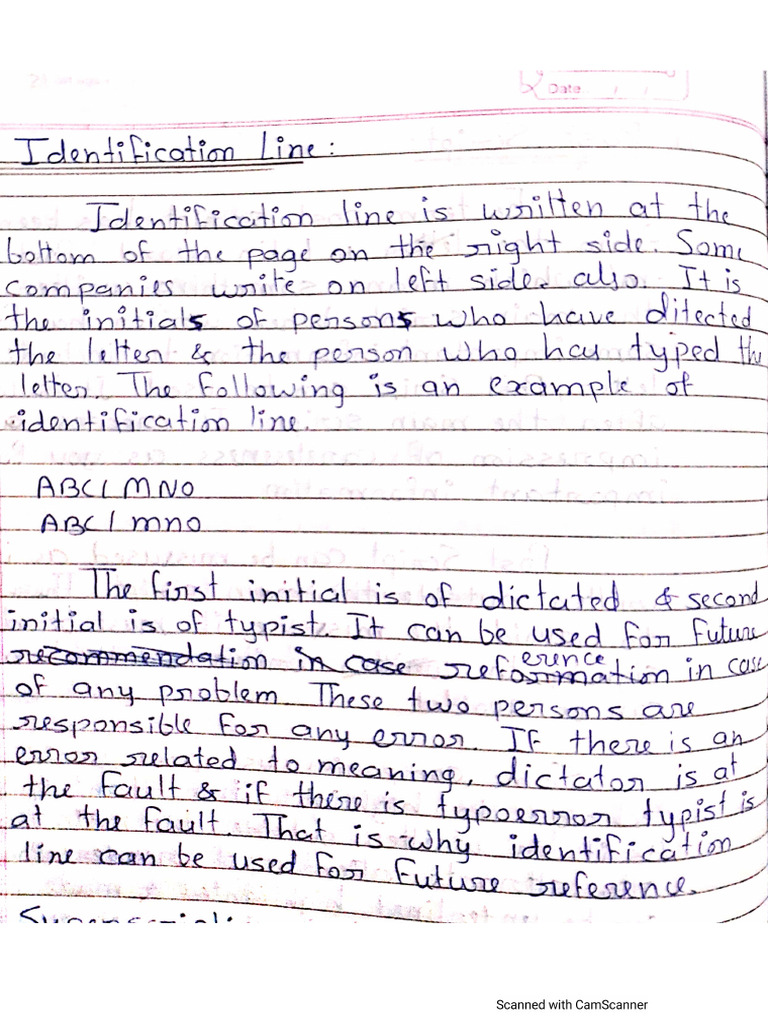 Date / /
Identification Line:
Identification line is written at the
bottom of the page on the right side. Some
companies write on left side also. It is
the initials of persons who have ditected
the letter & the person who has typed the
letter. The following is an example of
identification line.
ABC/MNO
ABC/mno
The first initial is of dictated & second
initial is of typist. It can be used for future
recommendation in case reference in case
of any problem. These two persons are
responsible for any error. If there is an
error related to meaning, dictator is at
the fault & if there is typoerror typist is
at the fault. That is why identification
line can be used for future reference.
Scanned with CamScanner